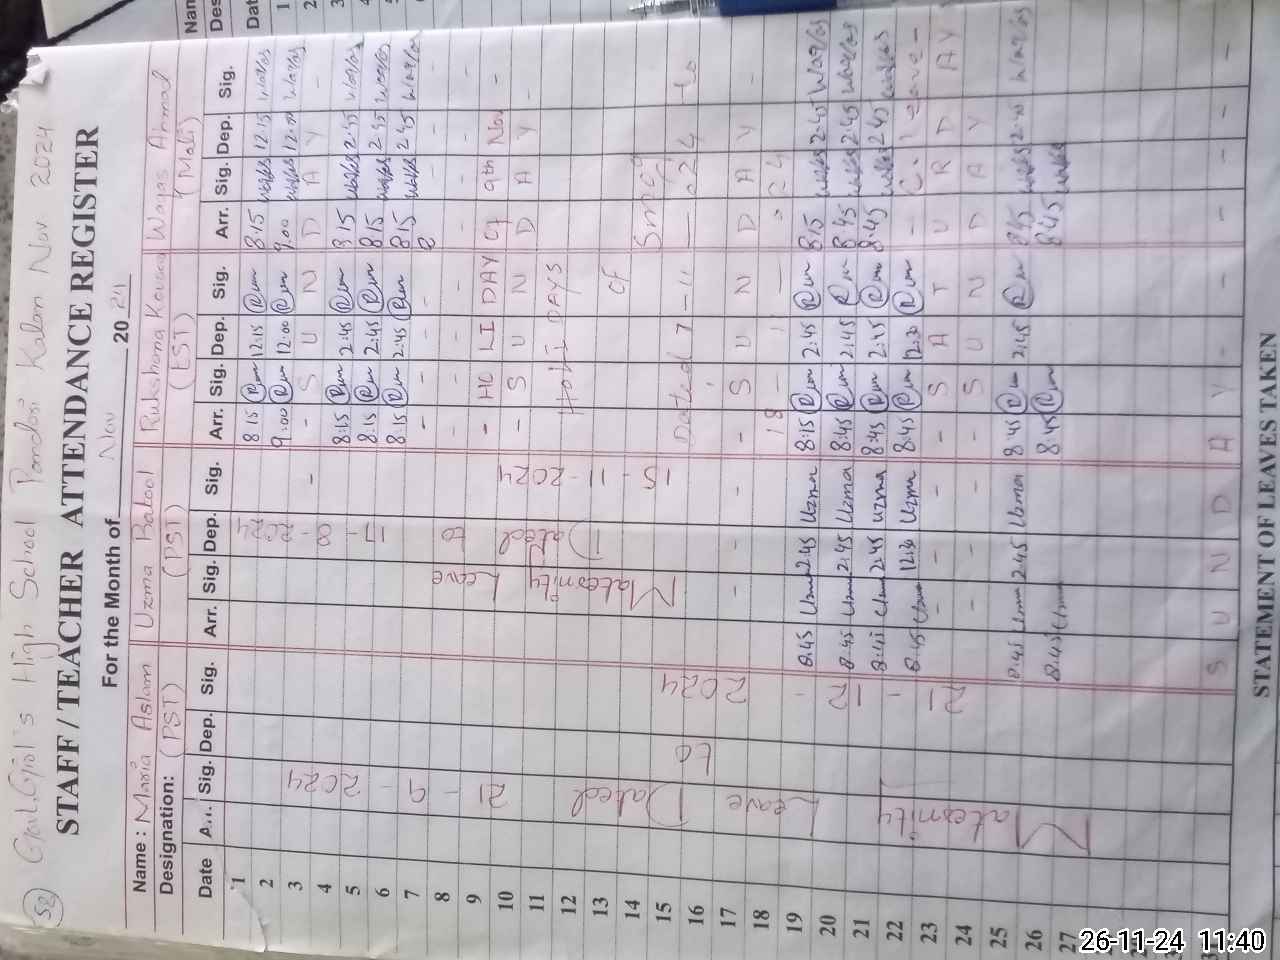 52 Govt. Girl's High School Pandosi Kalan Nov 2024
STAFF/TEACHER ATTENDANCE REGISTER
For the Month of Nov 2024
Name: Maria Aslam Uzma Batool Rukshama Kousar Waqas Ahmad
Designation: (PST) (PST) (EST) (Mali)
Date Arr. Sig. Dep. Sig. Arr. Sig. Dep. Sig. Arr. Sig. Dep. Sig. Arr. Sig. Dep. Sig.
1 8:15 12:15 8:15 waqas 12:15 waqas
2 9:00 12:00 9:00 waqas 12:00 waqas
3 - S U N D A Y -
4 8:15 2:45 8:15 waqas 2:45 waqas
5 8:15 2:45 8:15 waqas 2:45 waqas
6 8:15 2:45 8:15 waqas 2:45 waqas
7 - - - - 8 - - -
8 - - - - - - - -
9 - HOLIDAY of 9th Nov -
10 - S U N D A Y -
11 Holi DAYS
12
13 of
14 Smog
15 Dated 7-11-24 to
16
17 - - - - - S U N D A Y -
18 18-11-24
19 8:45 Uzma 2:45 Uzma 8:15 2:45 8:15 waqas 2:45 waqas
20 8:45 Uzma 2:45 Uzma 8:45 2:45 8:45 waqas 2:45 waqas
21 8:45 Uzma 2:45 Uzma 8:45 2:45 8:45 waqas 2:45 waqas
22 8:45 Uzma 12:30 Uzma 8:45 12:30 - C. Leave -
23 - - - - - S A T U R D A Y
24 - - - - - S U N D A Y -
25 8:45 Uzma 2:45 Uzma 8:45 2:45 8:45 waqas 2:45 waqas
26 8:45 Uzma 8:45 8:45 waqas
27
S U N D A Y - - - - -
Maternity Leave Dated 21-9-2024
to
21-12-2024
Maternity Leave
Dated to 17-8-2024
15-11-2024
STATEMENT OF LEAVES TAKEN
Nam
Des
Dat
1
2
3
4
5
6
7
26-11-24 11:40